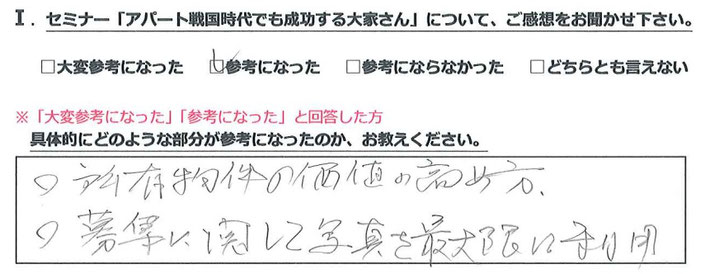 Ⅰ．セミナー「アパート戦国時代でも成功する大家さん」について、ご感想をお聞かせ下さい。
□大変参考になった □参考になった □参考にならなかった □どちらとも言えない
※「大変参考になった」「参考になった」と回答した方
具体的にどのような部分が参考になったのか、お教えください。
○所有物件の価値の高め方、
○募集に関して写真を最大限に利用